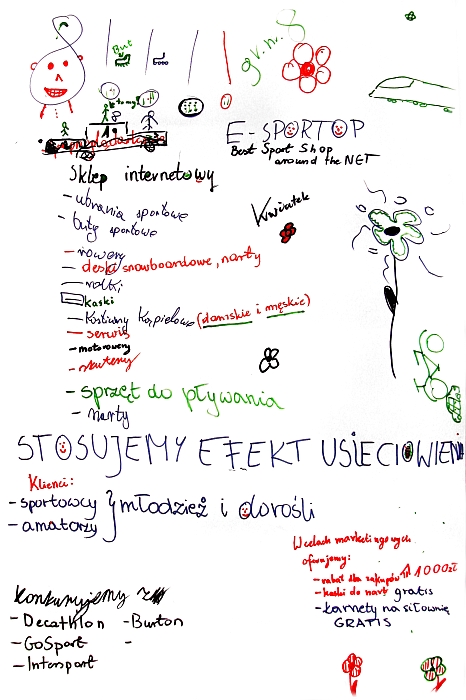 But
gr. nr. 8
to my!
E-SPORTOP
Best Sport Shop
around the NET
Sklep internetowy
- ubrania sportowe
- buty sportowe
Kwiatek
- rowery
- deski snowboardowe, narty
- rolki
- kaski
- Kostiumy Kąpielowe (damskie i męskie)
- serwis
- motorowery
- skutery
- sprzęt do pływania
- narty
STOSUJEMY EFEKT USIECIOWIENI
Klienci:
- sportowcy } młodzież i dorośli
- amatorzy
W celach marketingowych
oferujemy:
- rabat dla zakupów ⇑ 1000zł
- kaski do nart gratis
- karnety na siłownię
GRATIS
Konkurujemy z
- Decathlon - Burton
- GoSport -
- Intersport